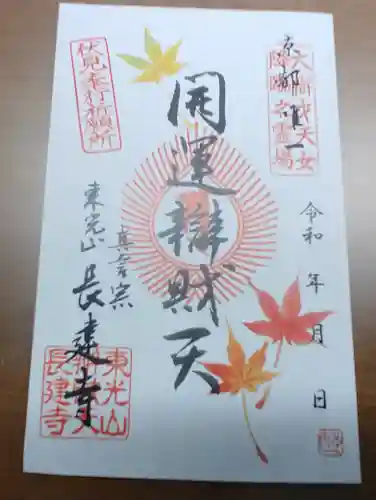 京都唯一
開運辯財天
令和　年　月　日
伏見奉行祈願所
真言宗
東光山
長建寺
東光山
長建寺